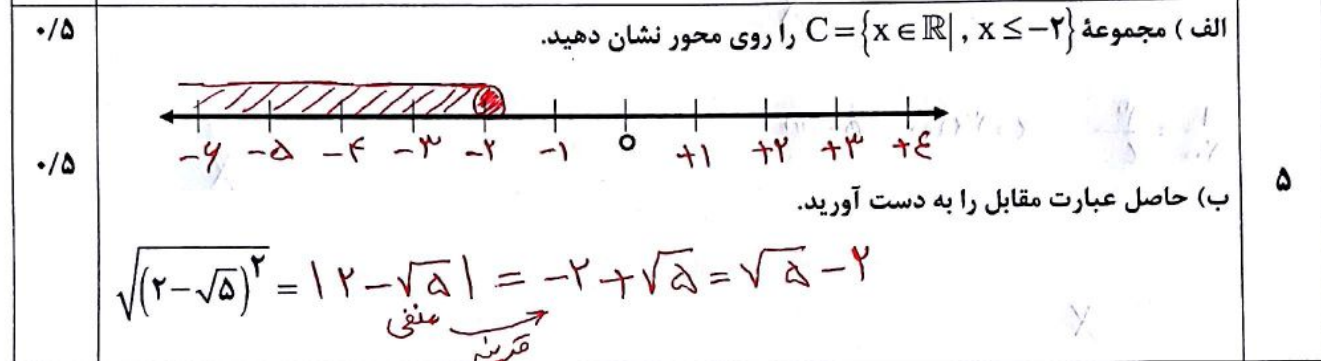 ۰/۵
الف ) مجموعهٔ C={x∈ℝ| , x≤−۲} را روی محور نشان دهید.
−۶ −۵ −۴ −۳ −۲ −۱ ۰ +۱ +۲ +۳ +٤
۰/۵
۵
ب) حاصل عبارت مقابل را به دست آورید.
√((۲−√۵)^۲) = |۲−√۵| = −۲+√۵ = √۵ −۲
منفی
قرینه